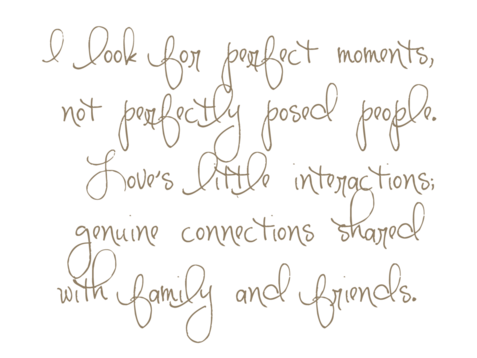 I look for perfect moments,
not perfectly posed people.
Love's little interactions;
genuine connections shared
with family and friends.